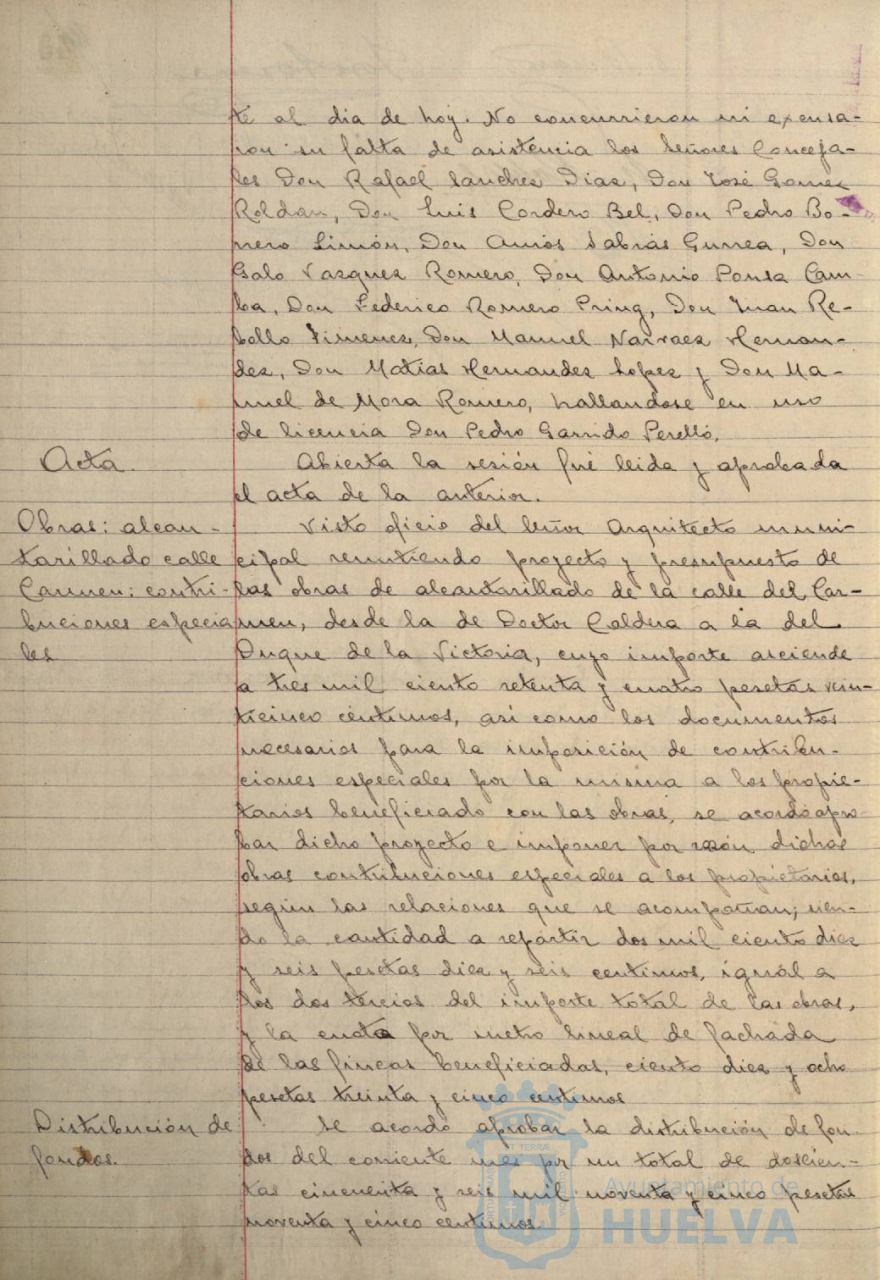 te al dia de hoy. No concurrieron ni excusa-
ron su falta de asistencia los Señores Conceja-
les Don Rafael Sanchez Diaz, Don José Gomez
Roldan, Don Luis Cordero Bel, Don Pedro Bo-
rrero Limón, Don Amós Sabrás Gurrea, Don
Galo Vazquez Romero, Don Antonio Pousa Cam-
ba, Don Federico Romero Pring, Don Juan Re-
bollo Jimenez, Don Manuel Narvaez Hernan-
dez, Don Matias Hernandez Lopez y Don Ma-
nuel de Mora Romero, hallandose en uso
de licencia Don Pedro Garrido Perelló.
Acta.
Abierta la sesión fué leida y aprobada
el acta de la anterior.
Obras: alcan-
tarillado calle
Carmen: contri-
buciones especia
les
Visto oficio del Señor Arquitecto muni-
cipal remitiendo proyecto y presupuesto de
las obras de alcantarillado de la calle del Car-
men, desde la de Doctor Caldera a la del
Duque de la Victoria, cuyo importe asciende
a tres mil ciento setenta y cuatro pesetas vein-
ticinco centimos, así como los documentos
necesarios para la imposición de contribu-
ciones especiales por la misma a los propie-
tarios beneficiado con las obras, se acordó apro-
bar dicho proyecto e imponer por razón dichas
obras contribuciones especiales a los propietarios,
según las relaciones que se acompañan; sien-
do la cantidad a repartir dos mil ciento diez
y seis pesetas diez y seis centimos, igual a
los dos tercios del importe total de las obras,
y la cuota por metro lineal de fachada
de las fincas beneficiadas, ciento diez y ocho
pesetas treinta y cinco centimos
Distribución de
fondos.
Se acordó aprobar la distribución de fon-
dos del corriente mes por un total de doscien-
tas cincuenta y seis mil noventa y cinco pesetas
noventa y cinco centimos.
Ayuntamiento de
HUELVA